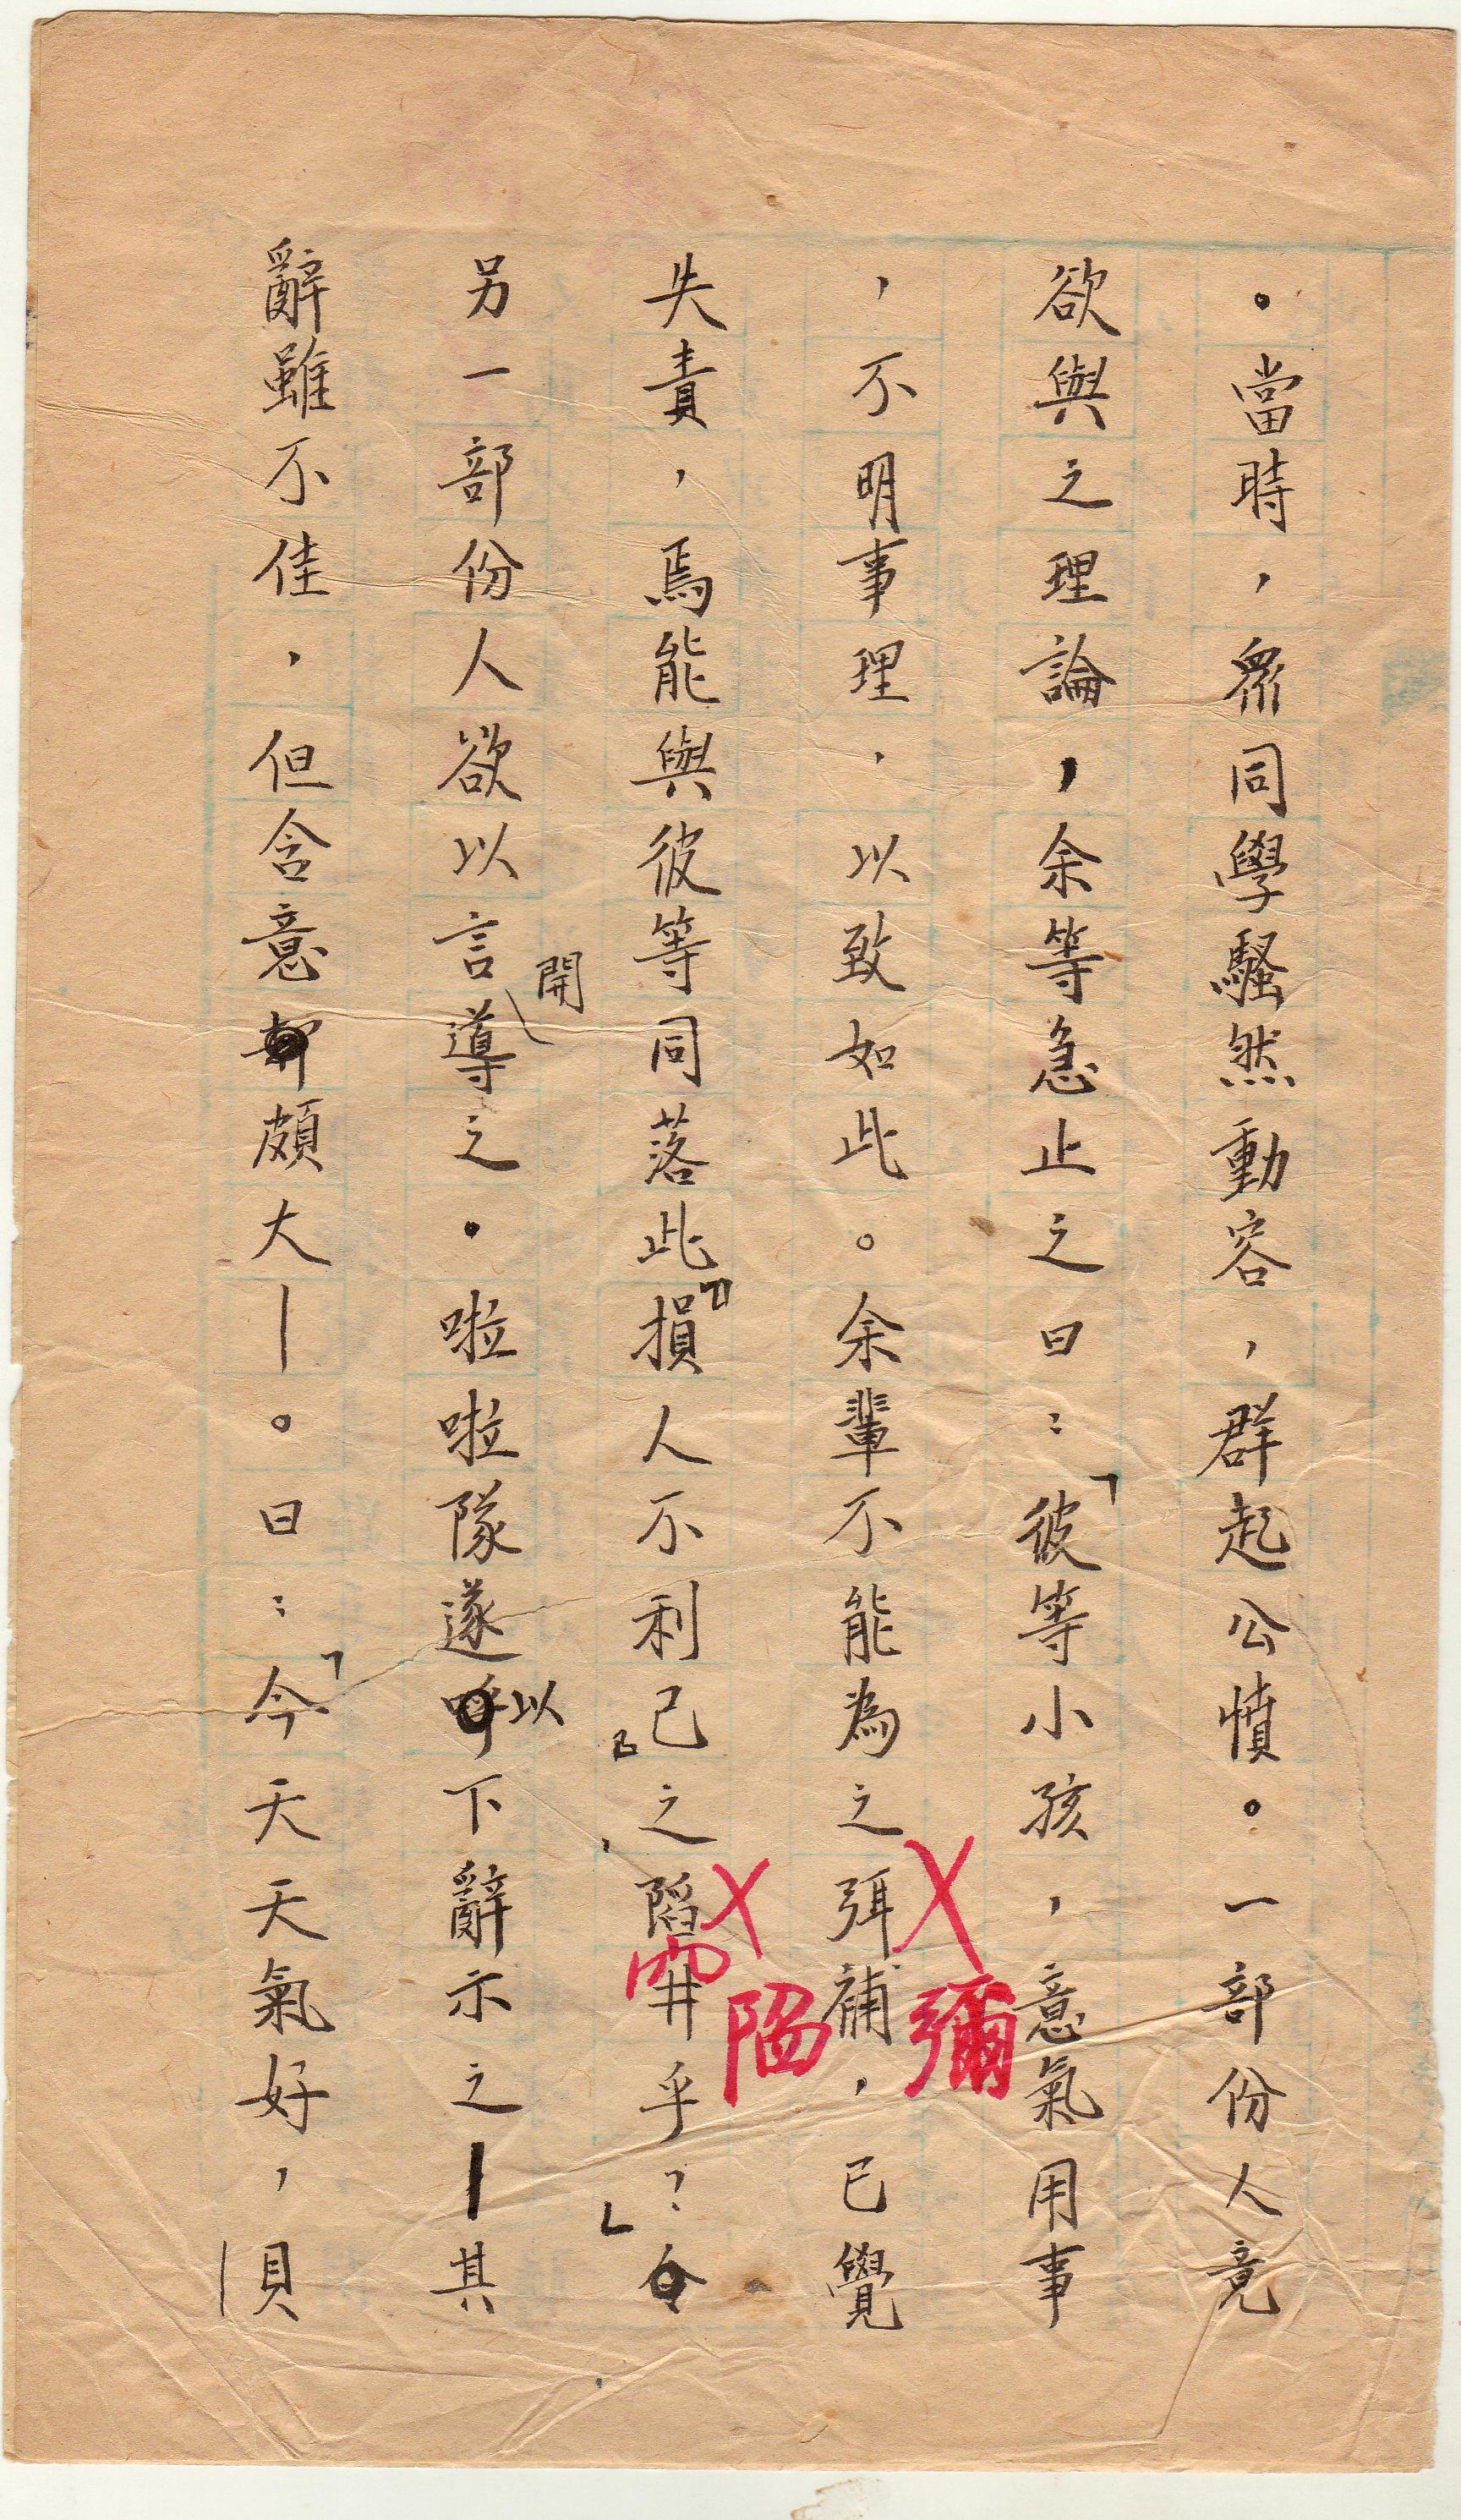 。當時，眾同學騷然動容，群起公憤。一部份人竟
欲與之理論，余等急止之曰：「彼等小孩，意氣用事
，不明事理，以致如此。余輩不能為之弭補，已覺
彌
失責，焉能與彼等同落此『損人不利己』之陷井乎？」
穴
陷
另一部份人欲以言開導之。啦啦隊遂以下辭示之—其
辭雖不佳，但含意頗大—。曰：「今天天氣好，貝